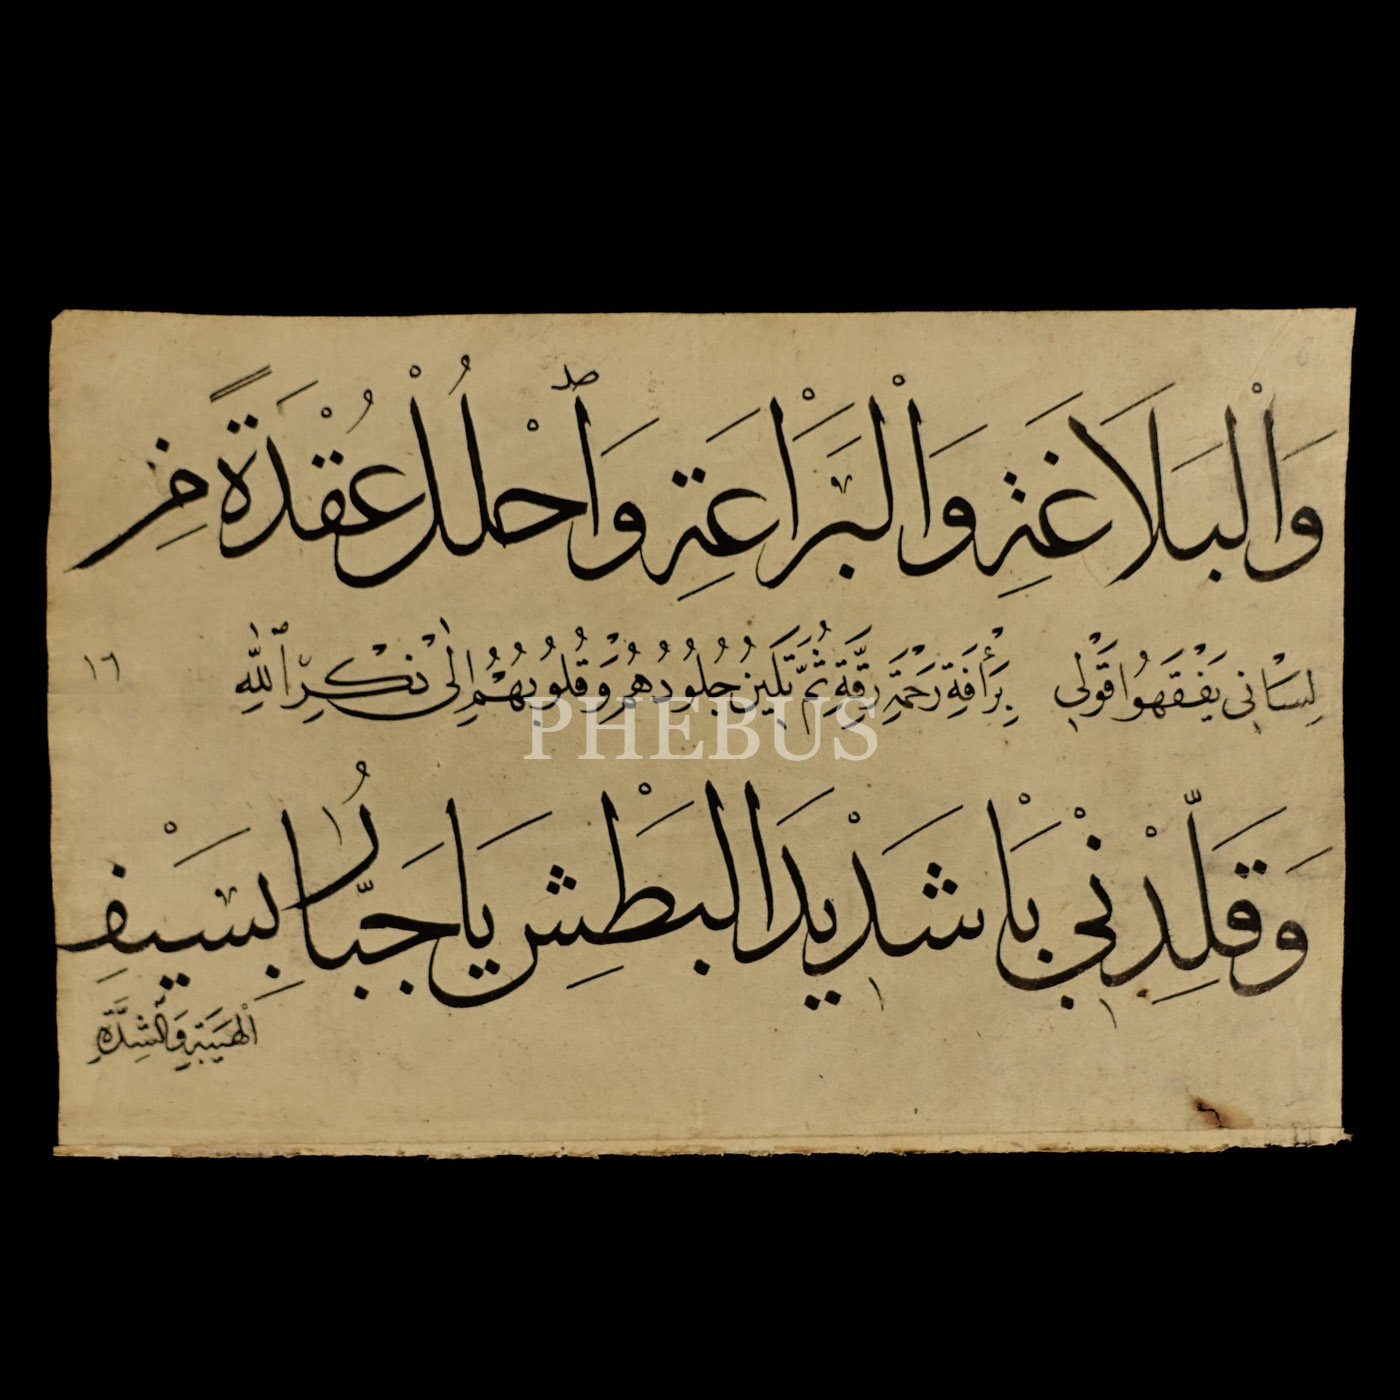 وَالْبَلَاغَةِ وَالْبَرَاعَةِ وَاحْلُلْ عُقْدَةً مِنْ
لِسَانِي يَفْقَهُوا قَوْلِي بِرَأْفَةِ رَحْمَةِ رِقَّةِ ثُمَّ تَلِينُ جُلُودُهُمْ وَقُلُوبُهُمْ إِلَى ذِكْرِ اللّٰهِ
١٦
PHEBUS
وَقَلِّدْنِي يَا شَدِيدَ الْبَطْشِ يَا جَبَّارُ بِسَيْفِ
الْهَيْبَةِ وَالشِّدَّةِ